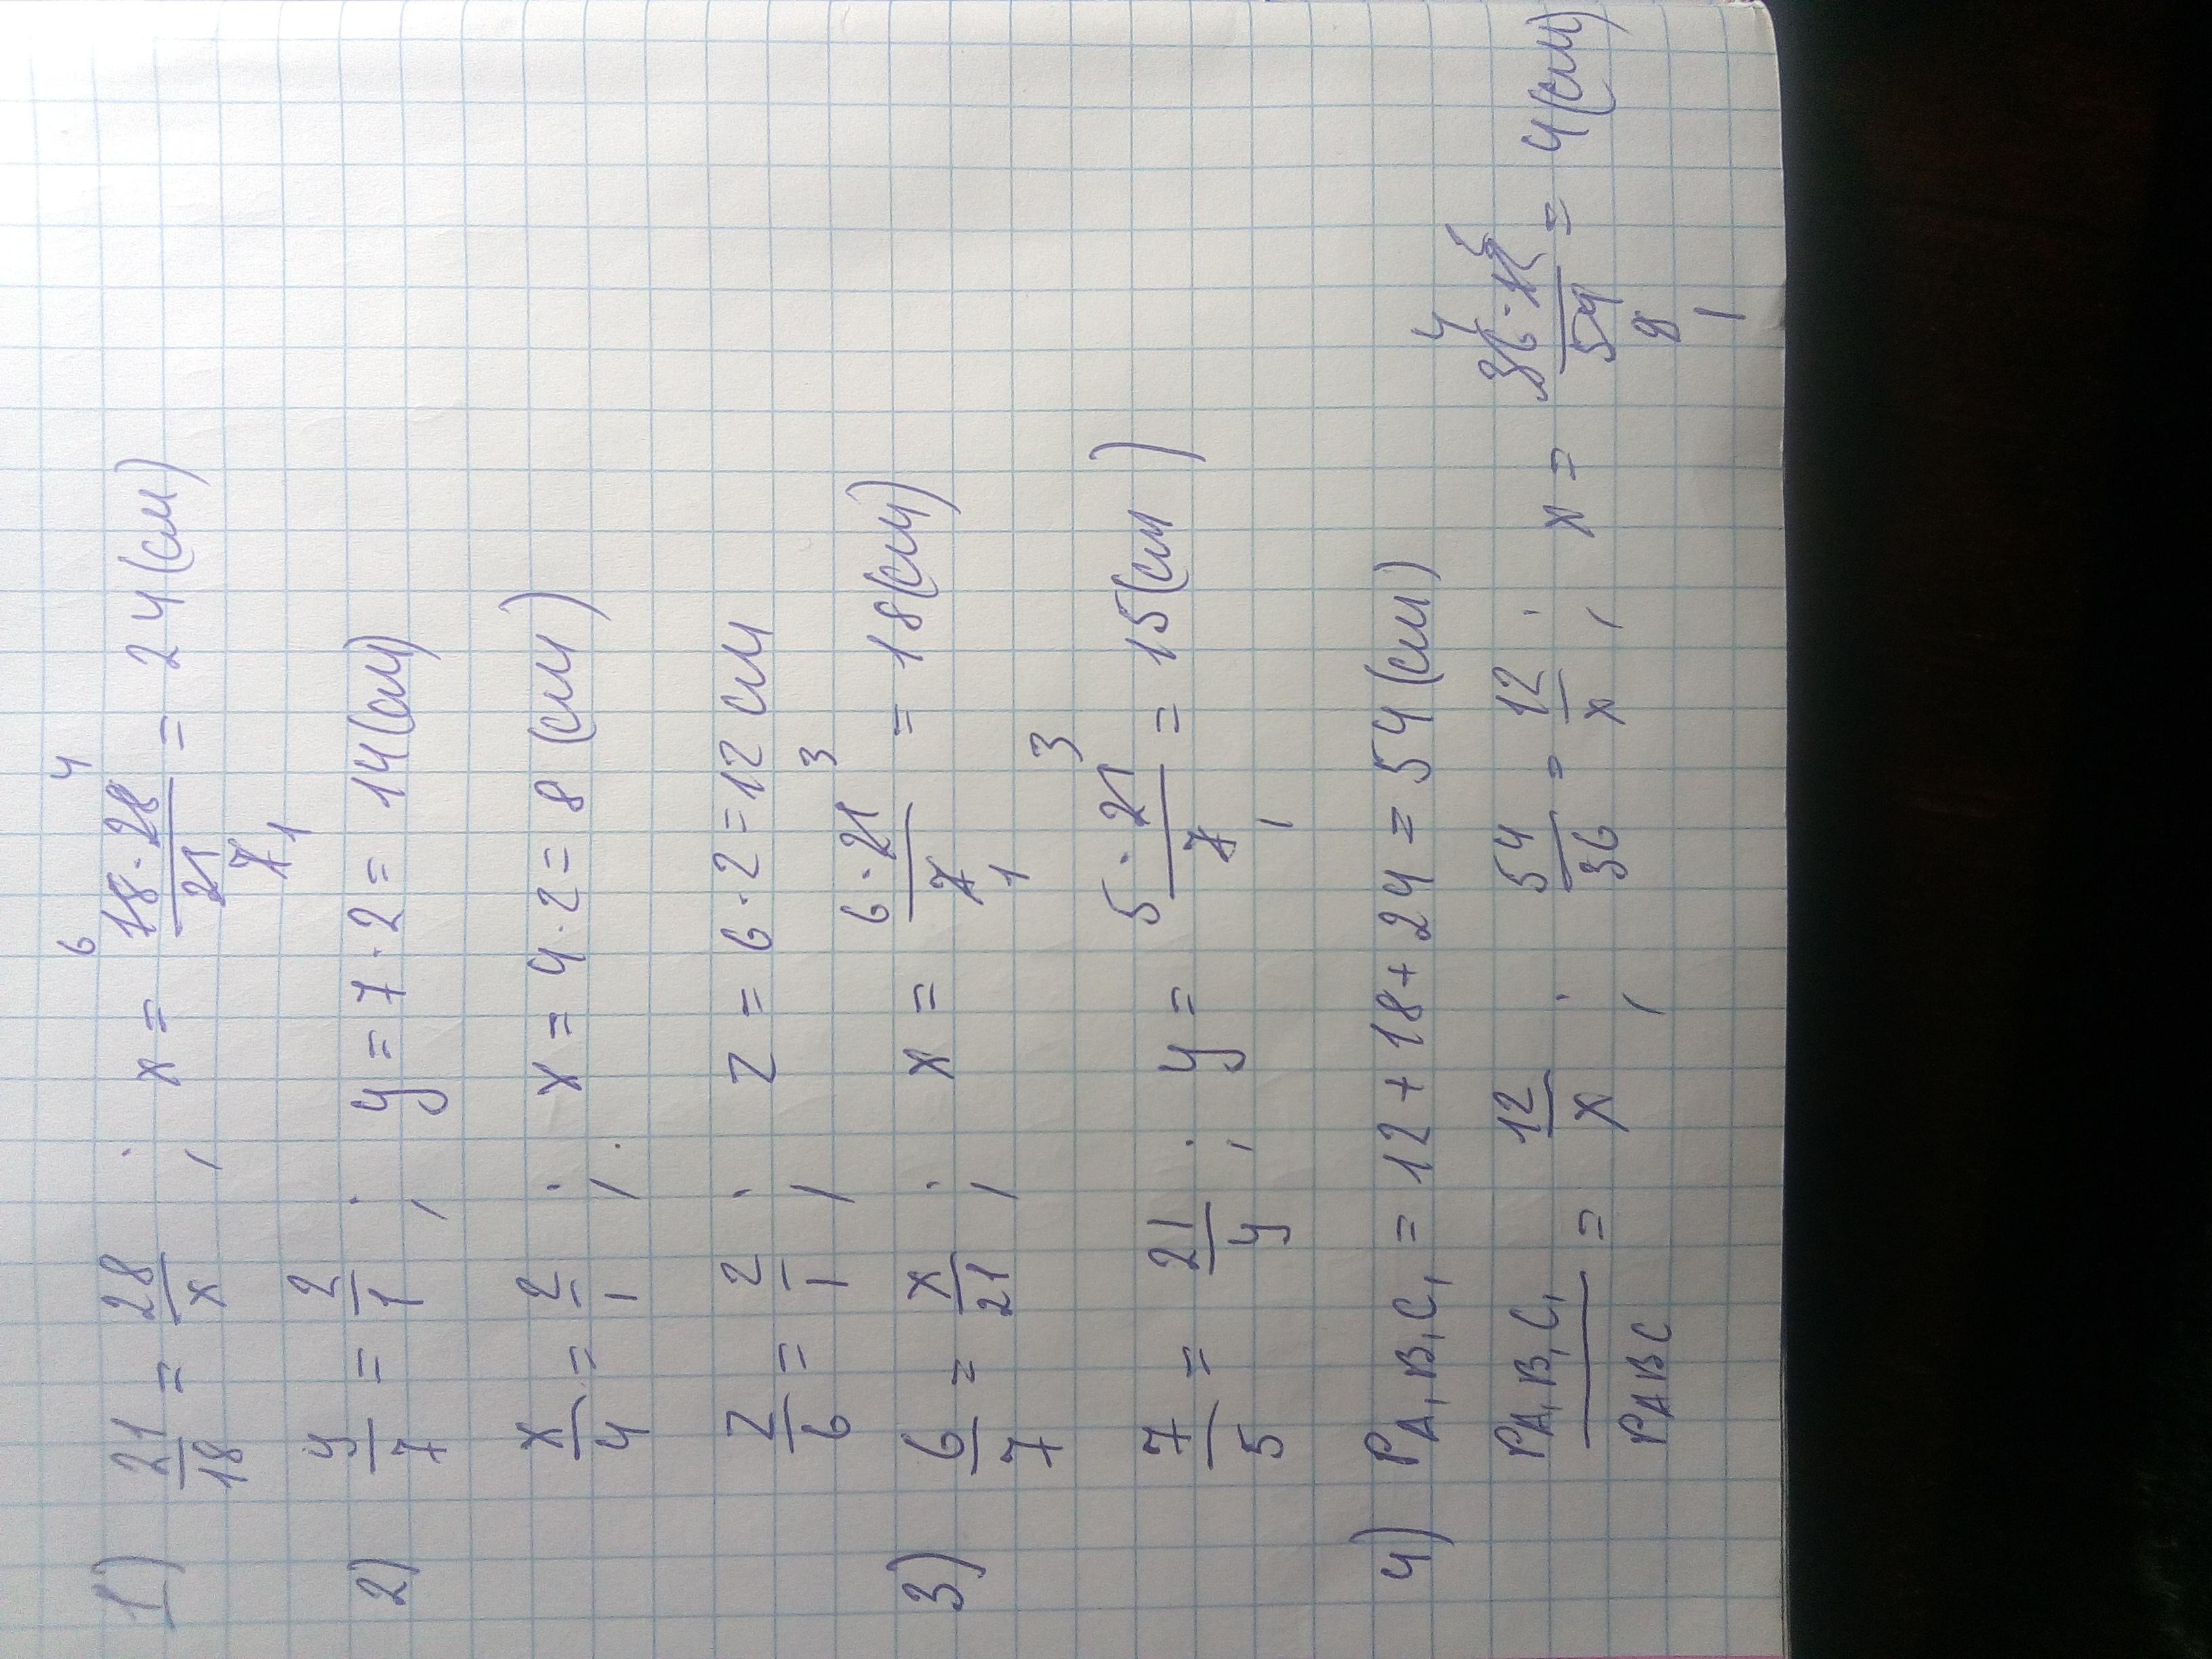 1) 21/18 = 28/x ; x = 18·28/21 = 24 (см) 6 4 7 1
2) y/7 = 2/1 ; y = 7·2 = 14 (см)
x/4 = 2/1 ; x = 4·2 = 8 (см)
z/6 = 2/1 ; z = 6·2 = 12 см
3) 6/7 = x/21 ; x = 6·21/7 = 18 (см) 3 1
7/5 = 21/y ; y = 5·21/7 = 15 (см) 3 1
4) PA₁B₁C₁ = 12 + 18 + 24 = 54 (см)
PA₁B₁C₁/PABC = 12/x ; 54/36 = 12/x ; x = 36·12/54 = 4 (см) 4